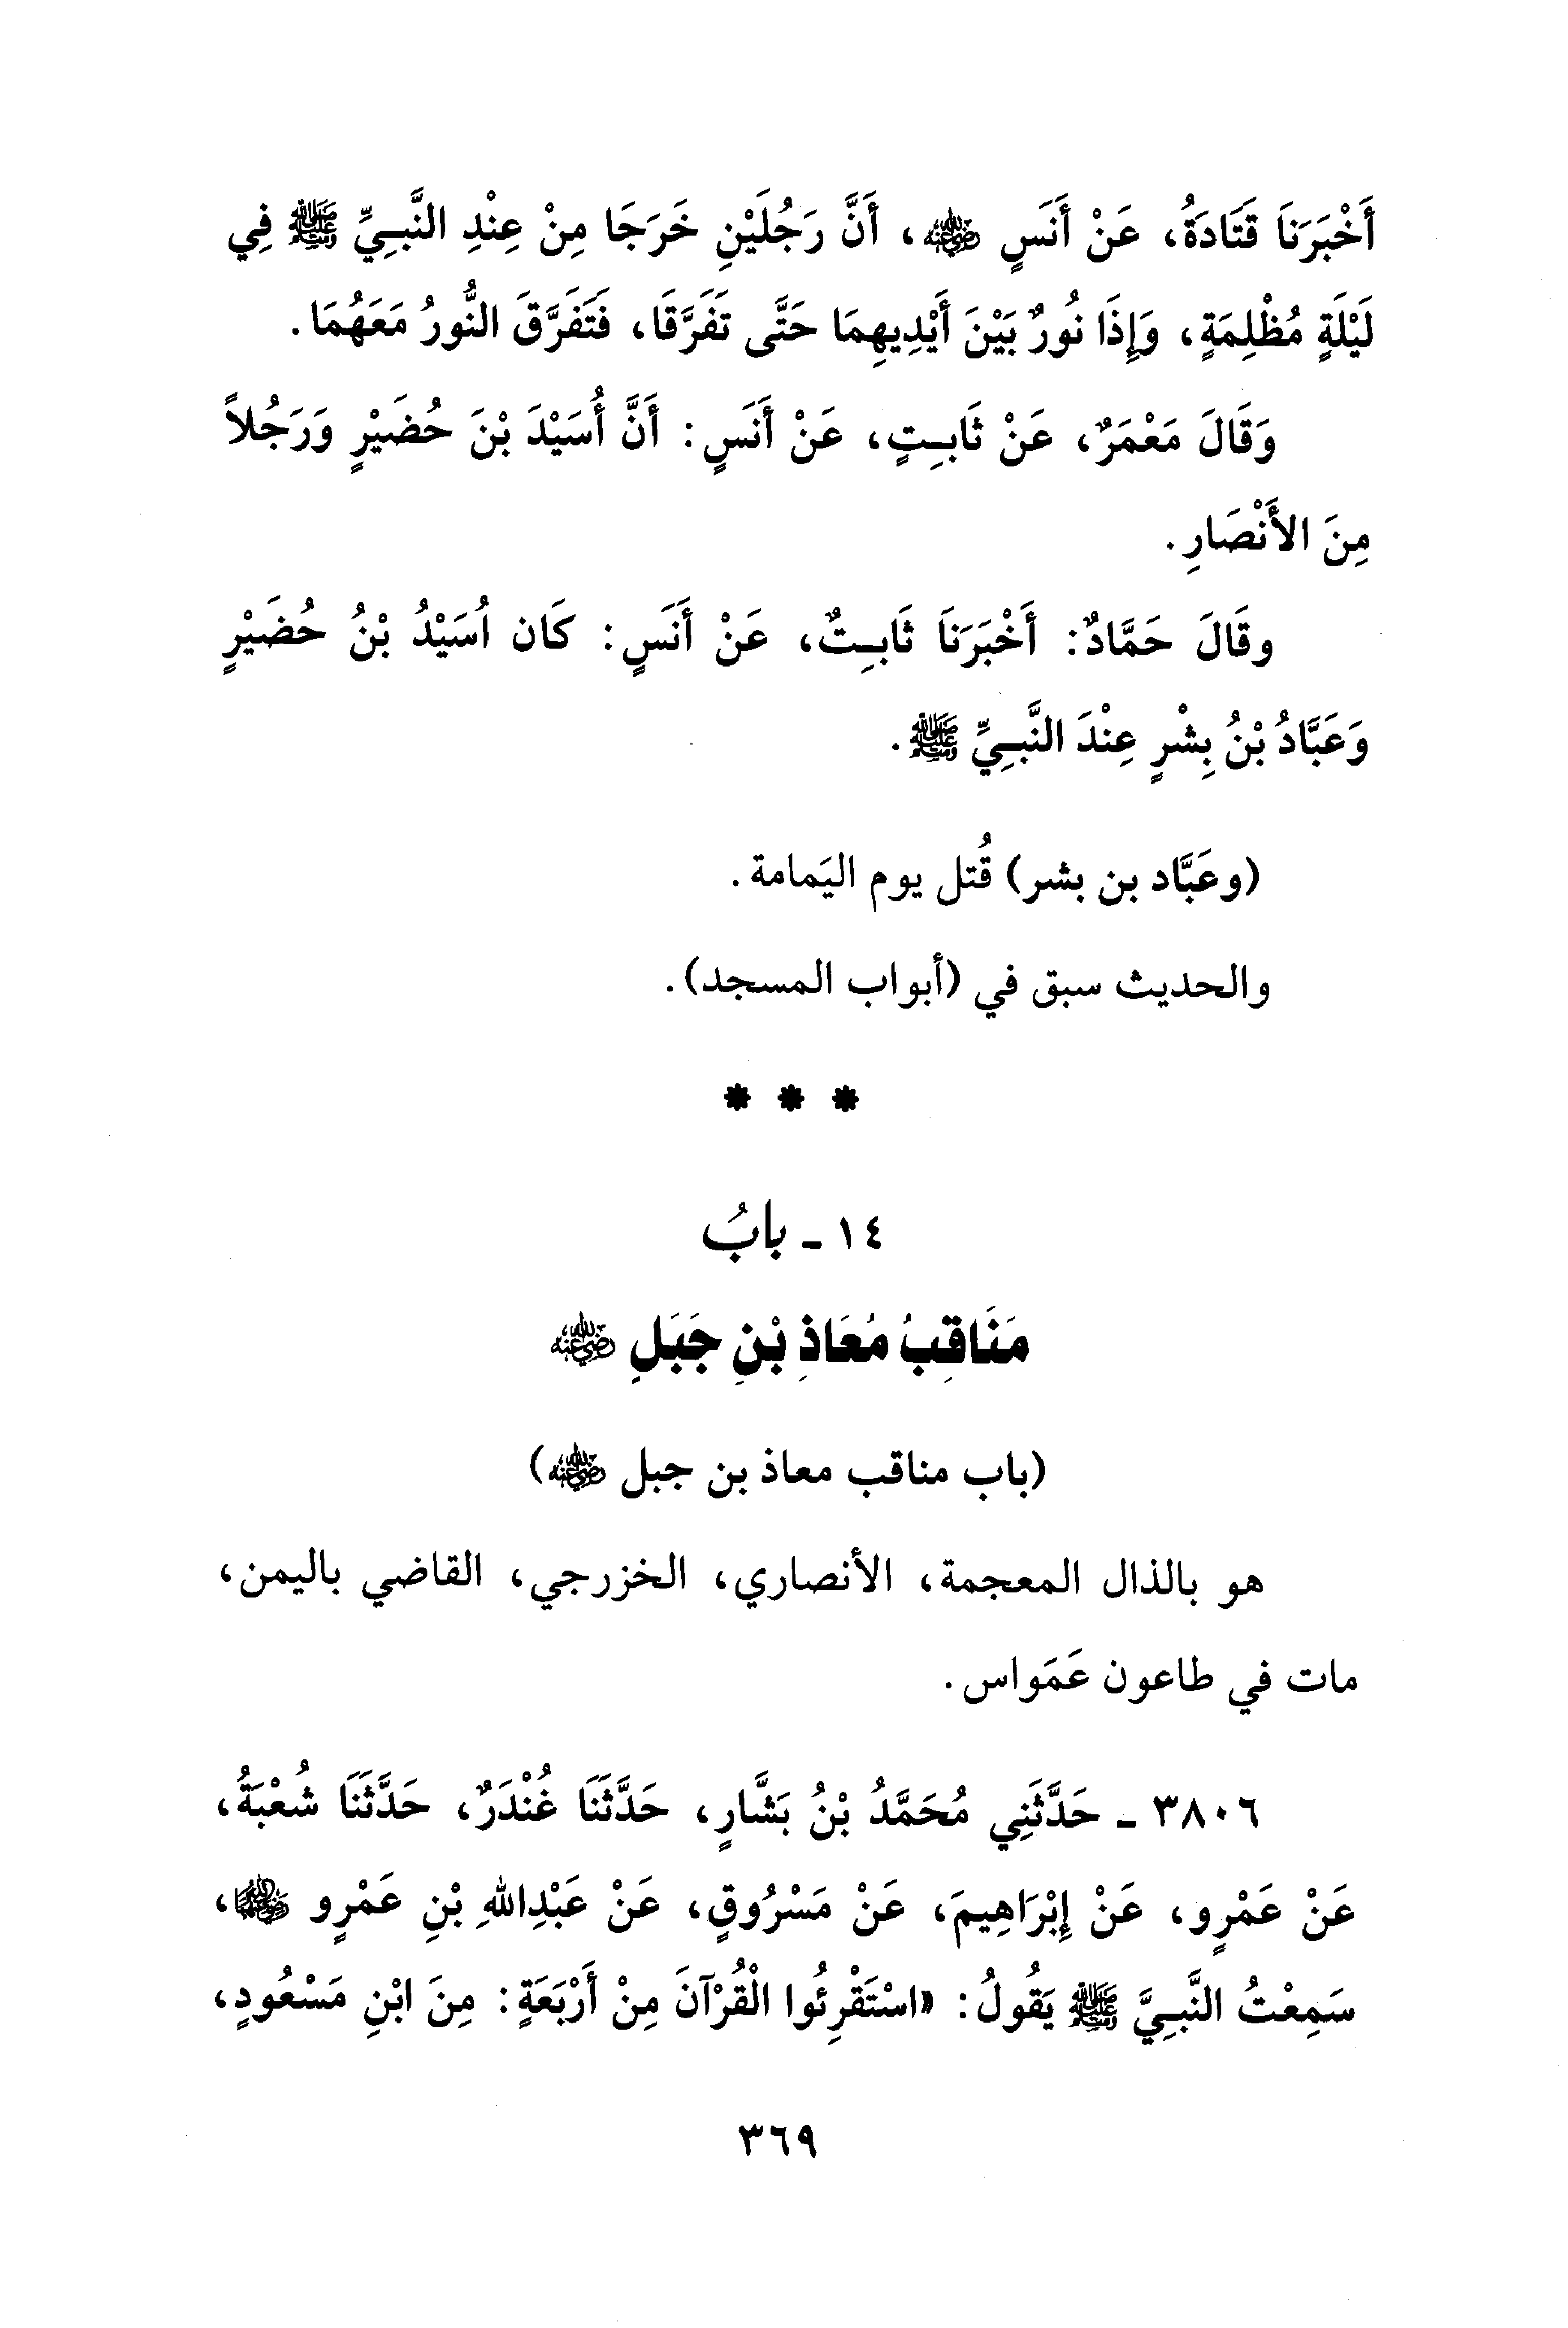 أَخْبَرَنَا قَتَادَةُ، عَنْ أَنَسٍ ﵁، أَنَّ رَجُلَيْنِ خَرَجَا مِنْ عِنْدِ النَّبِيِّ ﷺ فِي
لَيْلَةٍ مُظْلِمَةٍ، وَإِذَا نُورٌ بَيْنَ أَيْدِيهِمَا حَتَّى تَفَرَّقَا، فَتَفَرَّقَ النُّورُ مَعَهُمَا.
وَقَالَ مَعْمَرٌ، عَنْ ثَابِتٍ، عَنْ أَنَسٍ: أَنَّ أُسَيْدَ بْنَ حُضَيْرٍ وَرَجُلاً
مِنَ الأَنْصَارِ.
وقَالَ حَمَّادٌ: أَخْبَرَنَا ثَابِتٌ، عَنْ أَنَسٍ: كَان اُسَيْدُ بْنُ حُضَيْرٍ
وَعَبَّادُ بْنُ بِشْرٍ عِنْدَ النَّبِيِّ ﷺ.
(وعَبَّاد بن بشر) قُتل يوم اليَمامة.
والحديث سبق في (أبواب المسجد).
* * *
١٤ - بابُ
مَنَاقِبُ مُعَاذِ بْنِ جَبَلٍ ﵁
(باب مناقب معاذ بن جبل ﵁)
هو بالذال المعجمة، الأنصاري، الخزرجي، القاضي باليمن،
مات في طاعون عَمَواس.
٣٨٠٦ - حَدَّثَنِي مُحَمَّدُ بْنُ بَشَّارٍ، حَدَّثَنَا غُنْدَرٌ، حَدَّثَنَا شُعْبَةُ،
عَنْ عَمْرٍو، عَنْ إِبْرَاهِيمَ، عَنْ مَسْرُوقٍ، عَنْ عَبْدِاللهِ بْنِ عَمْرٍو ﵄،
سَمِعْتُ النَّبِيَّ ﷺ يَقُولُ: «اسْتَقْرِئُوا الْقُرْآنَ مِنْ أَرْبَعَةٍ: مِنَ ابْنِ مَسْعُودٍ،
٣٦٩